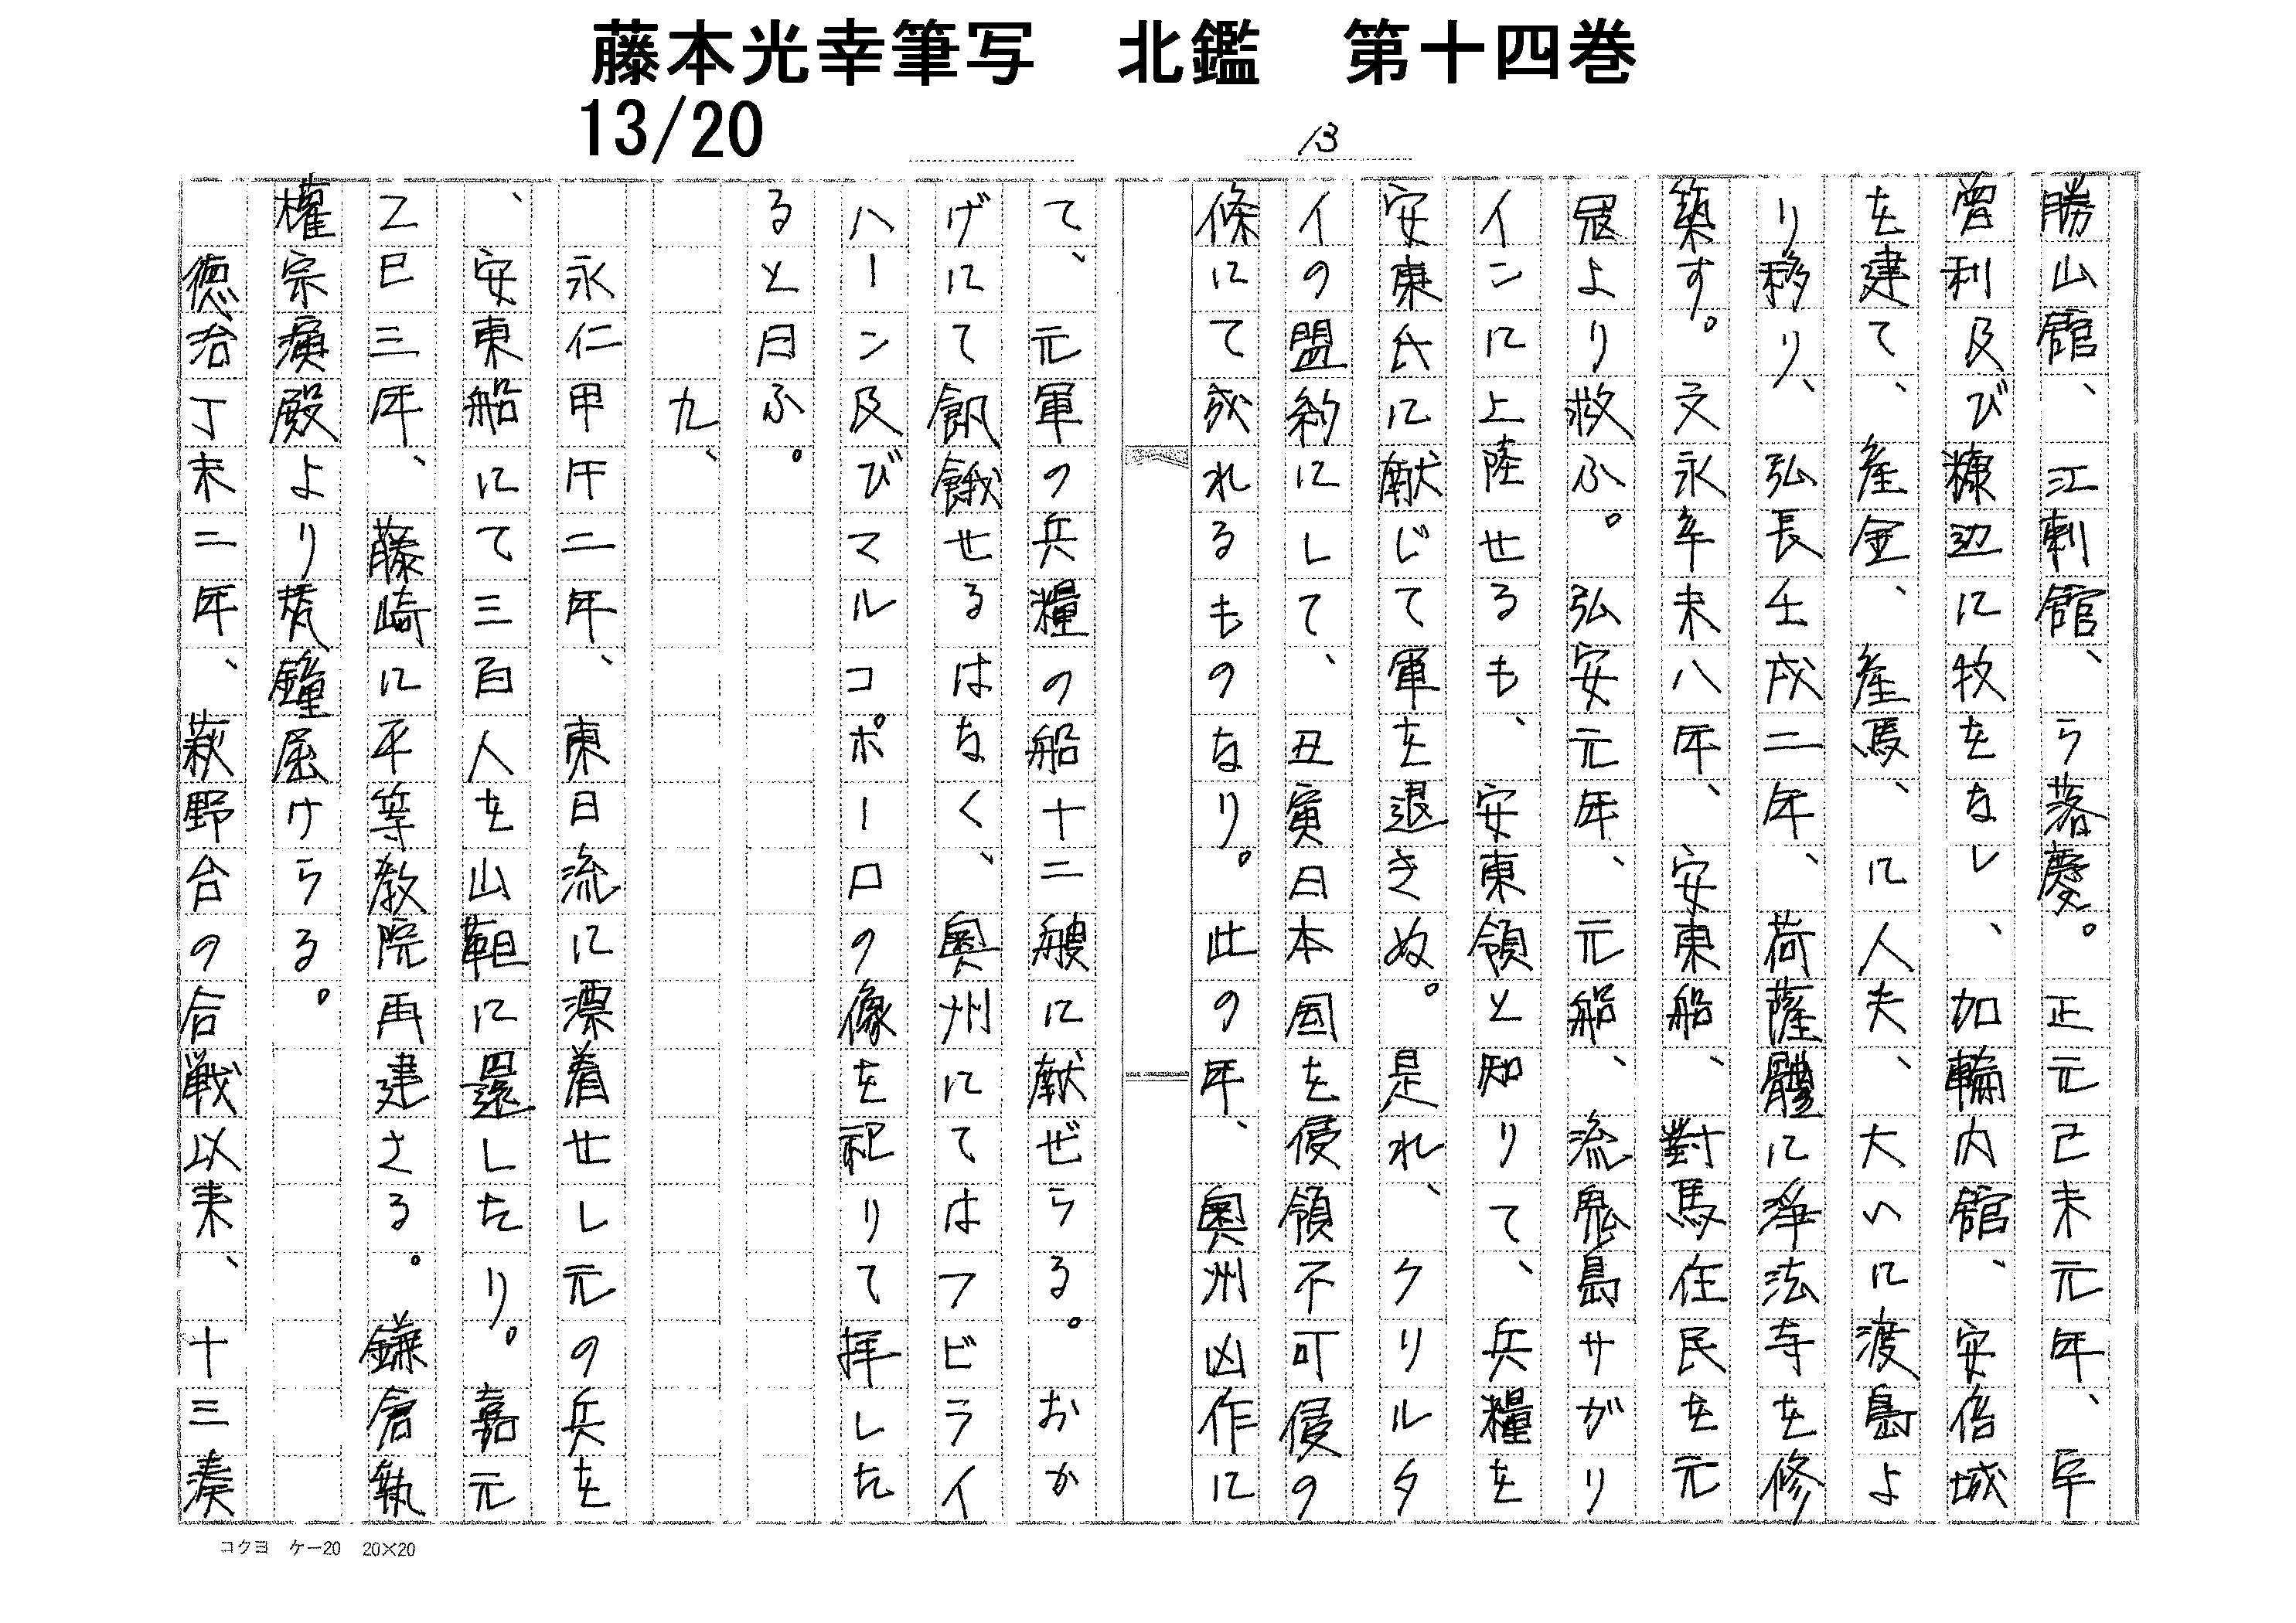 藤本光幸筆写　北鑑　第十四巻
13/20
13
勝山舘、江刺舘、ら落慶。正元己未元年、阜
曽利及び糠辺に牧をなし、加輪内舘、安倍城
を建て、産金、産馬、に人夫、大いに渡島よ
り移り、弘長壬戌二年、荷薩體に浄法寺を修
築す。文永辛未八年、安東船、對馬住民を元
冦より救ふ。弘安元年、元船、流鬼島サガリ
インに上陸せるも、安東領と知りて、兵糧を
安東氏に献じて軍を退きぬ。是れ、クリルタ
イの盟約にして、丑寅日本国を侵領不可侵の
條にて成れるものなり。此の年、奥州凶作に
て、元軍の兵糧の船十二艘に献ぜらる。おか
げにて飢餓せるはなく、奥州にてはフビライ
ハーン及びマルコポーロの像を祀りて拝した
ると曰ふ。
九、
永仁甲午二年、東日流に漂着せし元の兵を
、安東船にて三百人を山靼に還したり。嘉元
乙巳三年、藤崎に平等教院再建さる。鎌倉執
権宗演殿より梵鐘届けらる。
徳治丁未二年、萩野台の合戦以来、十三湊
コクヨ　ケー20　20×20